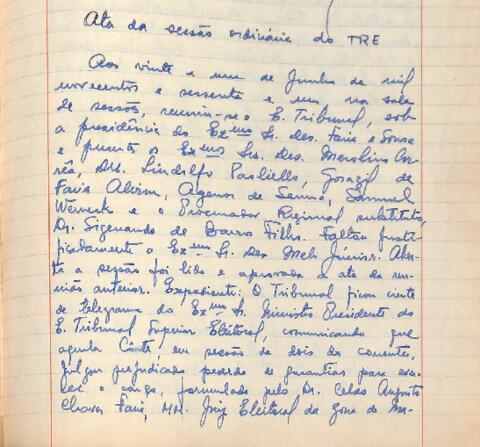 Ata da sessão ordinária do TRE
Aos vinte e um de Junho de mil
novecentos e sessenta e um na sala
de sessões, reuniu-se o E. Tribunal, sob
a presidência do Exmo Sr. Des. Faria e Sousa
e presentes os Exmos Srs. Des. Merolino Cor-
rêa, Drs. Lindolfo Paoliello, Gorazil de
Faria Alvim, Agenor de Senna, Samuel
Werneck e o Procurador Regional substituto,
Dr. Sigenando de Barros Filho. Faltou justi-
ficadamente o Exmo Sr. Des Melo Júnior. Aber-
ta a sessão foi lida e aprovada a ata da reu-
nião anterior. Expediente: O Tribunal ficou ciente
de telegrama do Exmo Sr. Ministro Presidente do
E. Tribunal Superior Eleitoral, comunicando que
aquela Côrte, em sessão de dois do corrente,
julgou prejudicado pedido de garantias para exer-
cer o cargo, formulado pelo Dr. Celso Augusto
Chaves Faria, MM. Juiz Eleitoral da zona de